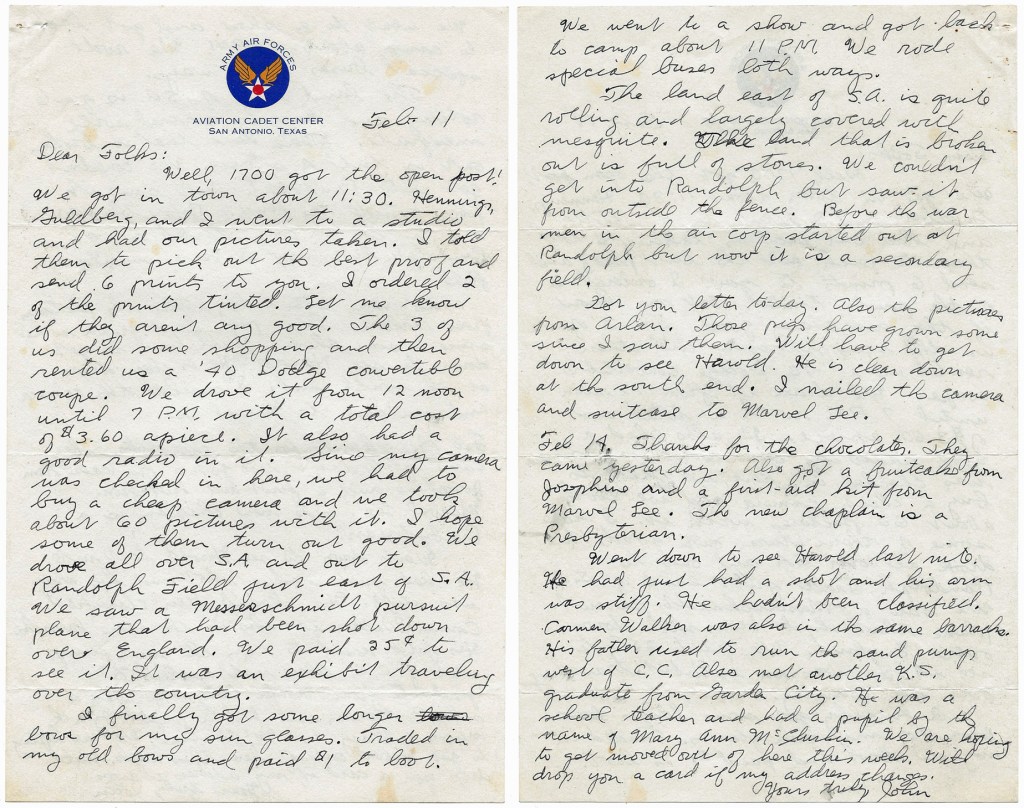 ARMY AIR FORCES
AVIATION CADET CENTER
SAN ANTONIO, TEXAS
Feb 11
Dear Folks:
Well, 1700 got the open post!
We got in town about 11:30. Hennings,
Guldberg, and I went to a studio
and had our pictures taken. I told
them to pick out the best proof and
send 6 prints to you. I ordered 2
of the prints tinted. Let me know
if they aren't any good. The 3 of
us did some shopping and then
rented us a '40 Dodge convertible
coupe. We drove it from 12 noon
until 7 P.M. with a total cost
of $3.60 apiece. It also had a
good radio in it. Since my camera
was checked in here, we had to
buy a cheap camera and we took
about 60 pictures with it. I hope
some of them turn out good. We
drove all over S.A and out to
Randolph Field just east of S.A.
We saw a Messerschmidt pursuit
plane that had been shot down
over England. We paid 25¢ to
see it. It was an exhibit traveling
over the country.
I finally got some longer
bows for my sun glasses. Traded in
my old bows and paid $1 to boot.
We went to a show and got back
to camp about 11 P.M. We rode
special buses both ways.
The land east of S.A. is quite
rolling and largely covered with
mesquite. The land that is broken
out is full of stones. We couldn't
get into Randolph but saw it
from outside the fence. Before the war
men in the air corp started out at
Randolph but now it is a secondary
field.
Got your letter today. Also the pictures
from Arlan. Those pigs have grown some
since I saw them. Will have to get
down to see Harold. He is clear down
at the south end. I mailed the camera
and suitcase to Marvel Lee.
Feb 14. Thanks for the chocolates. They
came yesterday. Also got a fruitcake from
Josephine and a first-aid kit from
Marvel Lee. The new chaplain is a
Presbyterian.
Went down to see Harold last nite.
He had just had a shot and his arm
was stiff. He hadn't been classified.
Carmen Walker was also in the same barracks.
His father used to run the sand pump
west of C.C. Also met another K.S.
graduate from Garden City. He was a
school teacher and had a pupil by the
name of Mary Ann. We are hoping
to get moved out of here this week. Will
drop you a card if my address changes.
Yours truly John